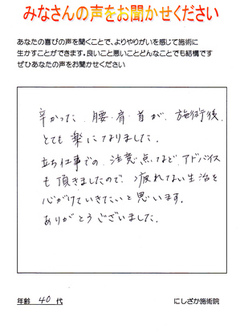 みなさんの声をお聞かせください
あなたの喜びの声を聞くことで、よりやりがいを感じて施術に
生かすことができます。良いこと悪いことどんなことでも結構です
ぜひあなたの声をお聞かせください
辛かった 腰・肩・首が、施術後
とても楽になりました。
立ち仕事での注意点など、アドバイス
も頂きましたので、疲れない生活を
心がけていきたいと思います。
ありがとうございました。
年齢 40 代
にしざか施術院